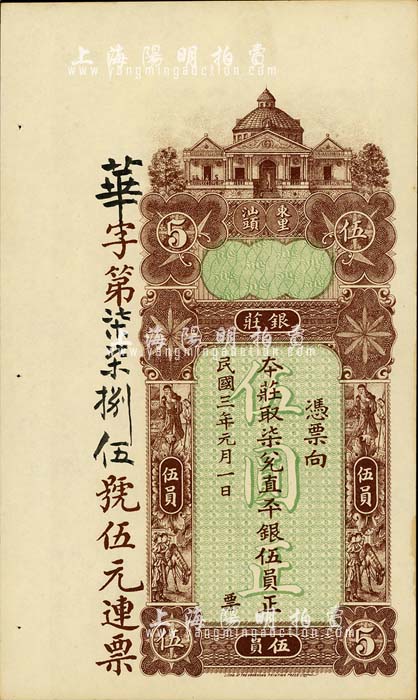 上海陽明拍賣
www.yangmingauction.com
東里
汕頭
5
伍
銀莊
憑票向
本莊取柒兌直平銀伍員正
民國三年元月一日
票
伍圓正
伍員
伍員
伍
伍員
5
華字第柒柒捌伍號伍元連票
上海陽明拍賣
www.yangmingauction.com
上海陽明拍賣
www.yangmingauction.com